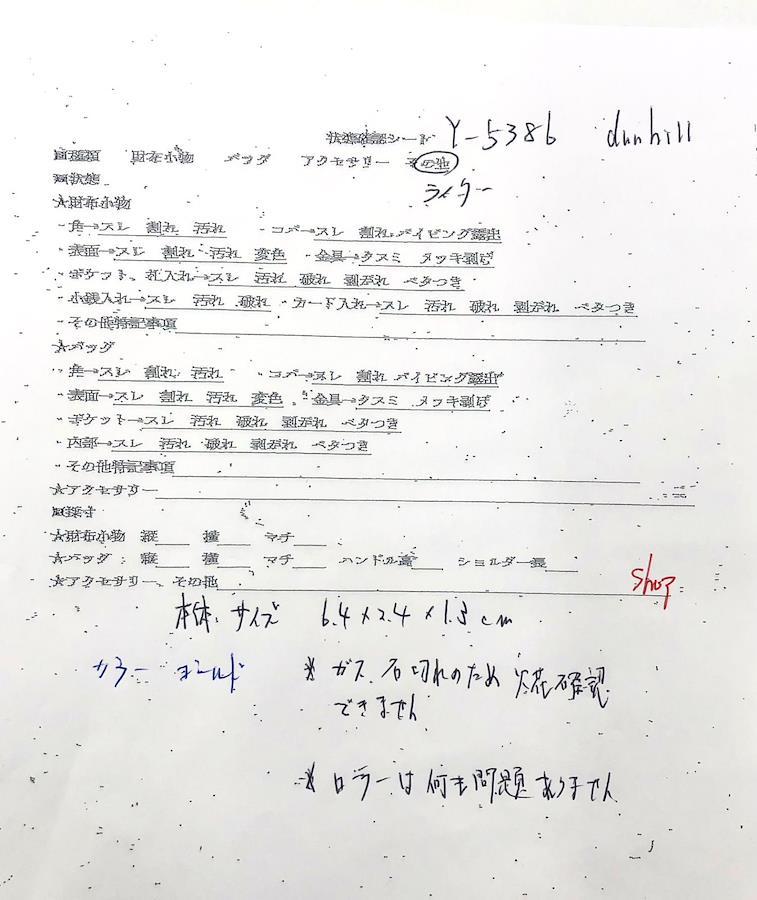 状態確認シート Y-5386 dunhill
■種類 財布小物 バッグ アクセサリー その他
ライター
■状態
★財布小物
・角→スレ 割れ 汚れ ・コバ→スレ 割れ パイピング露出
・表面→スレ 割れ 汚れ 変色 ・金具→クスミ メッキ剥げ
・ポケット、札入れ→スレ 汚れ 破れ 剥がれ ベタつき
・小銭入れ→スレ 汚れ 破れ ・カード入れ→スレ 汚れ 破れ 剥がれ ベタつき
・その他特記事項
★バッグ
・角→スレ 割れ 汚れ ・コバ→スレ 割れ パイピング露出
・表面→スレ 割れ 汚れ 変色 ・金具→クスミ メッキ剥げ
・ポケット→スレ 汚れ 破れ 剥がれ ベタつき
・内部→スレ 汚れ 破れ 剥がれ ベタつき
・その他特記事項
★アクセサリー
■採寸
★財布小物 縦 横 マチ
★バッグ 縦 横 マチ ハンドル高 ショルダー長
★アクセサリー、その他
shop
本体、サイズ 6.4×2.4×1.3cm
カラー ゴールド ※ ガス、石切れのため 火花確認
できません
※ ローラーは何も問題ありません